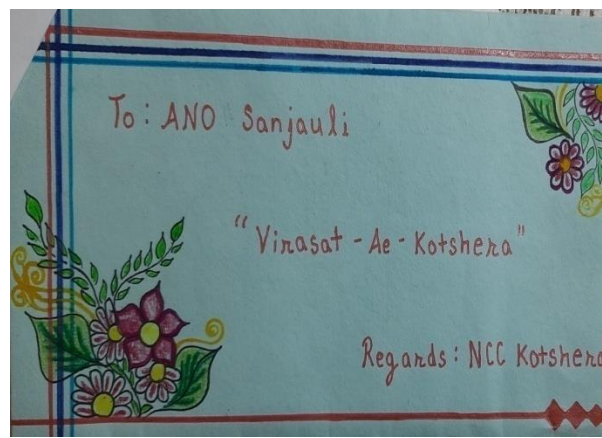 To : ANO Sanjauli
"Virasat - Ae - Kotshera"
Regards : NCC Kotshera